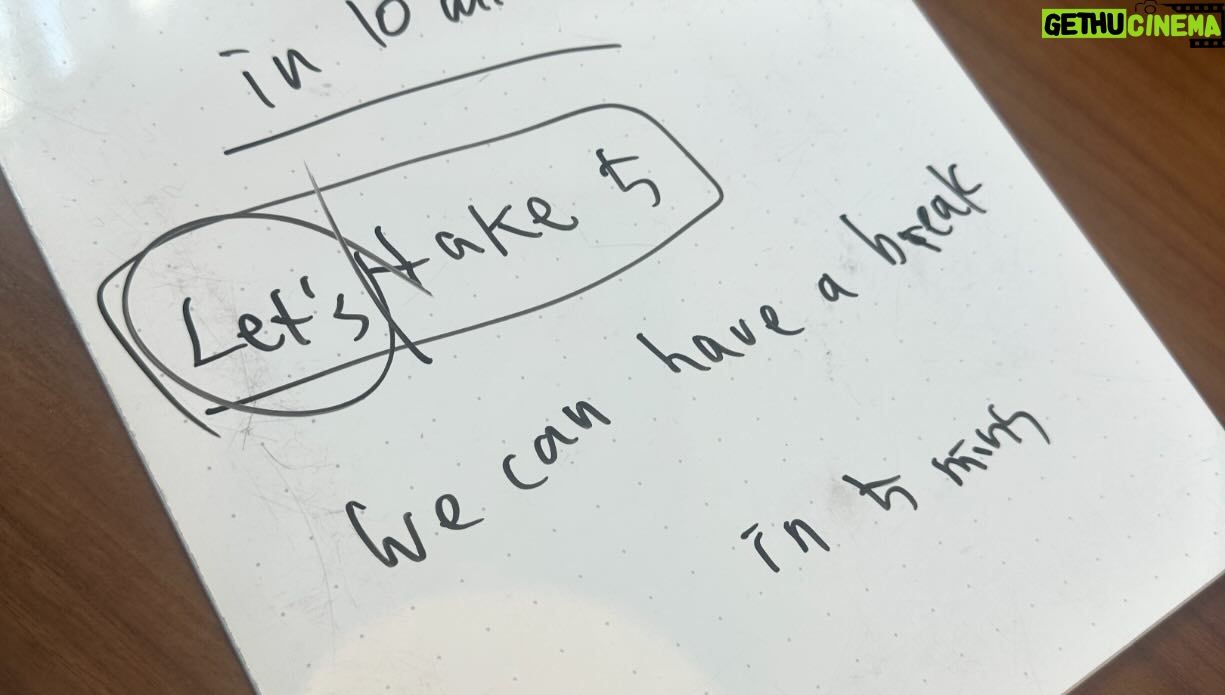 GETHUCINEMA
in 10
Let's take 5
We can have a break
in 5 mins